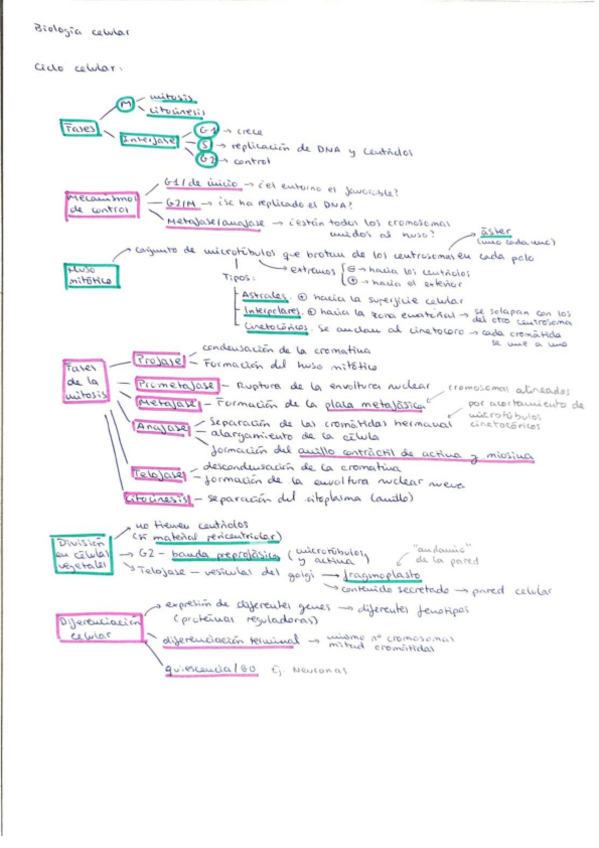 Biología celular
Ciclo celular:
Fases
M
mitosis
citocinesis
Interfase
G1 → crece
S → replicación de DNA y centriolos
G2 → control
Mecanismos de control
G1/de inicio → ¿el entorno es favorable?
G2/M → ¿se ha replicado el DNA?
Metafase/anafase → ¿están todos los cromosomas unidos al huso?
áster
(uno cada uno)
Huso mitótico
conjunto de microtúbulos que brotan de los centrosomas en cada polo
extremos
⊖ → hacia los centriolos
⊕ → hacia el exterior
Tipos:
Astrales. ⊕ hacia la superficie celular
Interpolares. ⊕ hacia la zona ecuatorial → se solapan con los del otro centrosoma
Cinetocóricos. se anclan al cinetocoro → cada cromátida se une a uno
Fases de la mitosis
Profase
condensación de la cromatina
Formación del huso mitótico
Prometafase – Ruptura de la envoltura nuclear
Metafase – Formación de la placa metafásica
cromosomas alineados por acortamiento de microtúbulos cinetocóricos
Anafase
separación de las cromátidas hermanas
alargamiento de la célula
formación del anillo contráctil de actina y miosina
Telofase
descondensación de la cromatina
formación de la envoltura nuclear nueva
Citocinesis – separación del citoplasma (anillo)
División en células vegetales
no tienen centriolos
(sí material pericentriolar)
G2 – banda preprofásica (microtúbulos y actina)
Telofase – vesículas del golgi → fragmoplasto
"andamio" de la pared
contenido secretado → pared celular
Diferenciación celular
expresión de diferentes genes → diferentes fenotipos
(proteínas reguladoras)
diferenciación terminal → mismo nº cromosomas
mitad cromátidas
quiescencia/G0 Ej. Neuronas